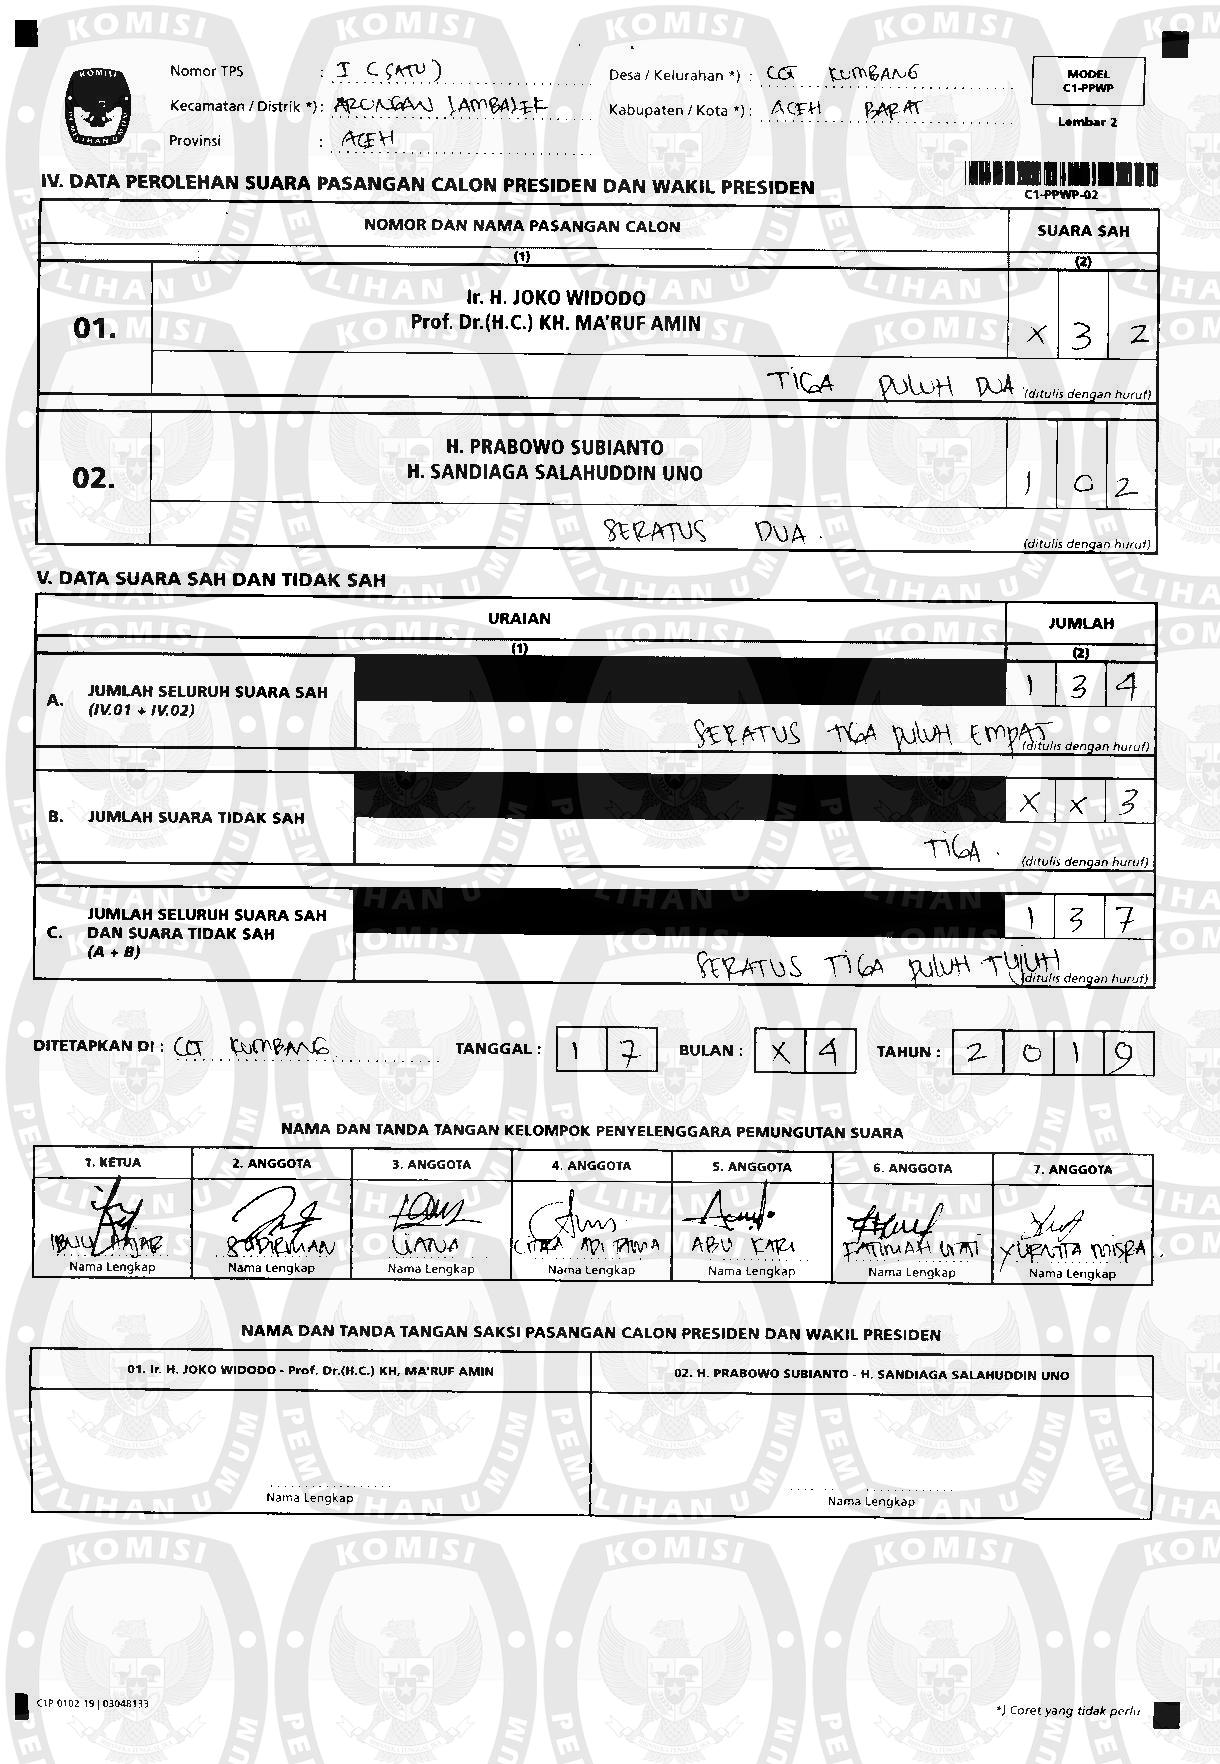 Nomor TPS : I (SATU)
Desa / Kelurahan *) : COT KUMBANG
MODEL
C1-PPWP
Kecamatan / Distrik *) : ARONGAN LAMBALEK
Kabupaten / Kota *) : ACEH BARAT
Lembar 2
Provinsi : ACEH
IV. DATA PEROLEHAN SUARA PASANGAN CALON PRESIDEN DAN WAKIL PRESIDEN
C1-PPWP-02
NOMOR DAN NAMA PASANGAN CALON
SUARA SAH
(1)
(2)
01.
Ir. H. JOKO WIDODO
Prof. Dr.(H.C.) KH. MA'RUF AMIN
X 3 2
TIGA PULUH DUA (ditulis dengan huruf)
02.
H. PRABOWO SUBIANTO
H. SANDIAGA SALAHUDDIN UNO
1 0 2
SERATUS DUA.
(ditulis dengan huruf)
V. DATA SUARA SAH DAN TIDAK SAH
URAIAN
JUMLAH
(1)
(2)
A.
JUMLAH SELURUH SUARA SAH
(IV.01 + IV.02)
1 3 4
SERATUS TIGA PULUH EMPAT
(ditulis dengan huruf)
B. JUMLAH SUARA TIDAK SAH
X X 3
TIGA.
(ditulis dengan huruf)
C.
JUMLAH SELURUH SUARA SAH
DAN SUARA TIDAK SAH
(A + B)
1 3 7
SERATUS TIGA PULUH TUJUH
(ditulis dengan huruf)
DITETAPKAN DI : COT KUMBANG TANGGAL : 1 7 BULAN : X 4 TAHUN : 2 0 1 9
NAMA DAN TANDA TANGAN KELOMPOK PENYELENGGARA PEMUNGUTAN SUARA
1. KETUA 2. ANGGOTA 3. ANGGOTA 4. ANGGOTA 5. ANGGOTA 6. ANGGOTA 7. ANGGOTA
IBNU HAJAR SUDIRMAN LIANA CITRA ADI TAMA ABU KARI FATIMAH WATI YURNITA MISRA
Nama Lengkap Nama Lengkap Nama Lengkap Nama Lengkap Nama Lengkap Nama Lengkap Nama Lengkap
NAMA DAN TANDA TANGAN SAKSI PASANGAN CALON PRESIDEN DAN WAKIL PRESIDEN
01. Ir. H. JOKO WIDODO - Prof. Dr.(H.C.) KH. MA'RUF AMIN
02. H. PRABOWO SUBIANTO - H. SANDIAGA SALAHUDDIN UNO
Nama Lengkap
Nama Lengkap
C1P 0102 19 | 03048133
*) Coret yang tidak perlu